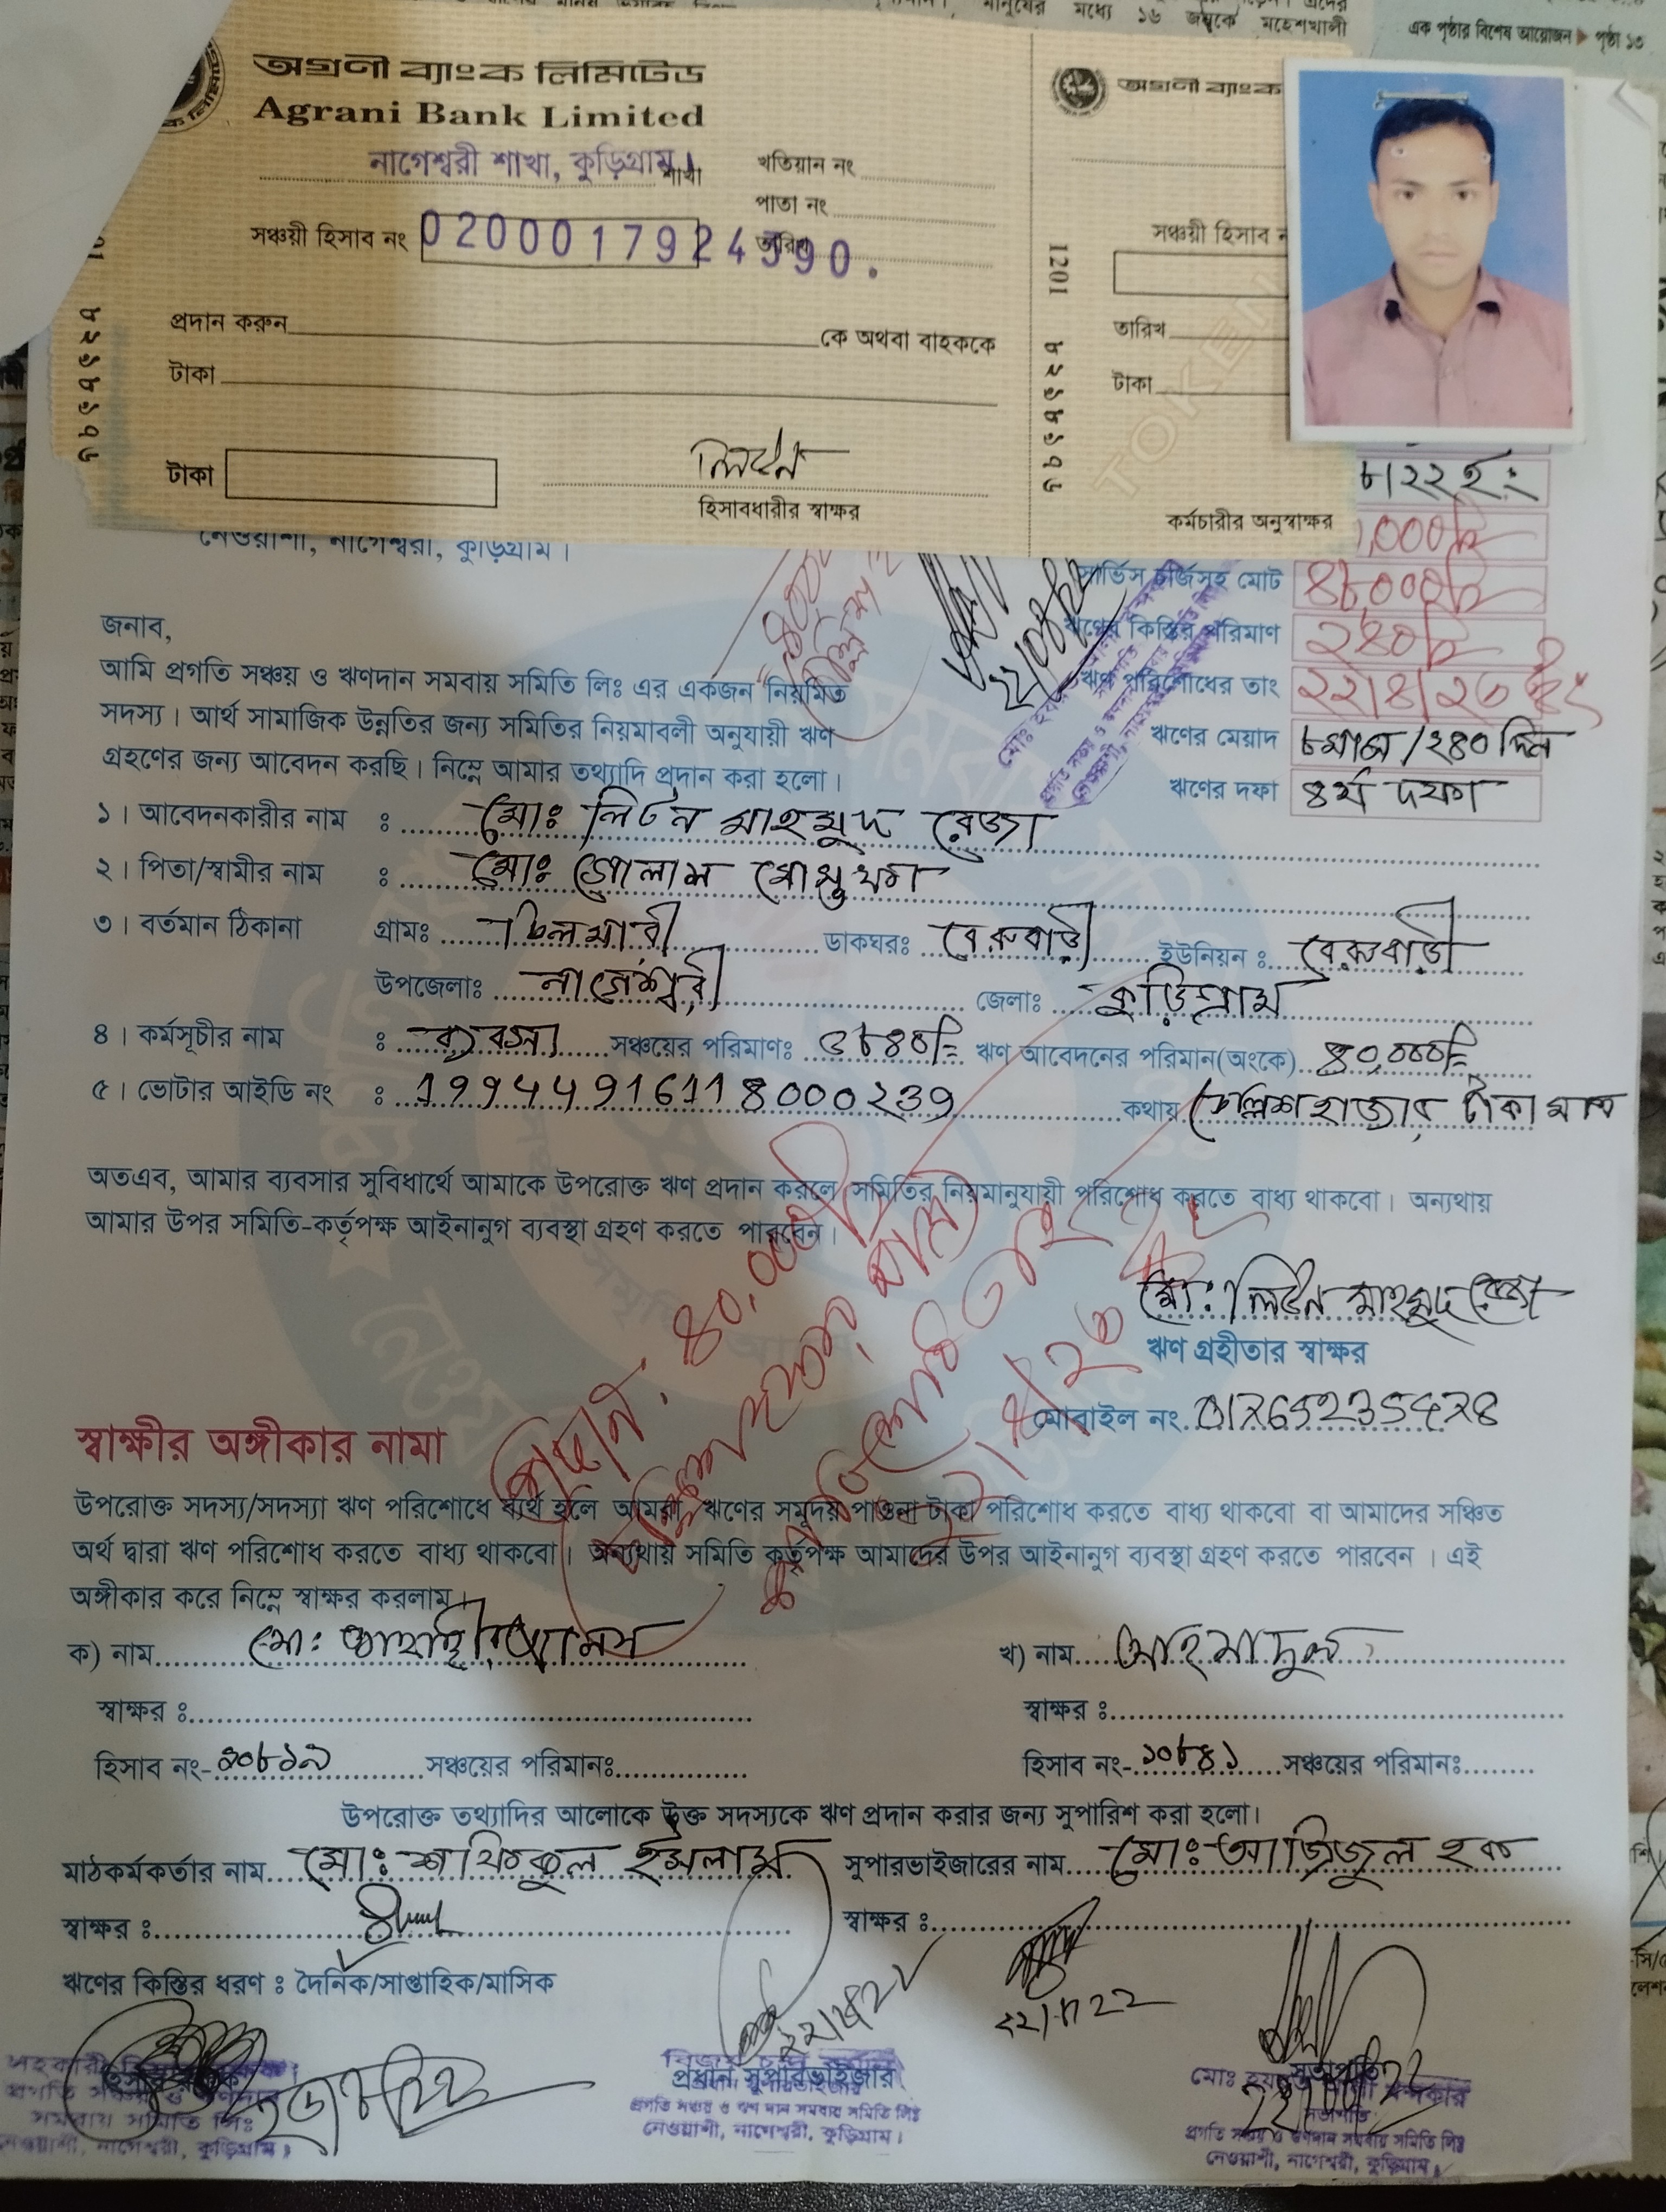 মানুষের মধ্যে ১৬ জনকে মহেশখালী
এক পৃষ্ঠার বিশেষ আয়োজন ▶ পৃষ্ঠা ১৩
অগ্রণী ব্যাংক লিমিটেড
Agrani Bank Limited
নাগেশ্বরী শাখা, কুড়িগ্রাম। শাখা
খতিয়ান নং
পাতা নং
তারিখ
সঞ্চয়ী হিসাব নং 0200017924390.
প্রদান করুন কে অথবা বাহককে
টাকা
টাকা
লিটন
হিসাবধারীর স্বাক্ষর
1201
৮২১৮১৭৬
অগ্রণী ব্যাংক
সঞ্চয়ী হিসাব ন
তারিখ
টাকা
TOKEN
কর্মচারীর অনুস্বাক্ষর
নেওয়াশী, নাগেশ্বরী, কুড়িগ্রাম।
সার্ভিস চার্জসহ মোট ৪৮,০০০/=
ঋণের কিস্তির পরিমাণ ২৪০/=
ঋণ পরিশোধের তাং ২২/৪/২৩ ইং
ঋণের মেয়াদ ৮মাস/২৪০ দিন
ঋণের দফা ৪র্থ দফা
জনাব,
আমি প্রগতি সঞ্চয় ও ঋণদান সমবায় সমিতি লিঃ এর একজন নিয়মিত
সদস্য। আর্থ সামাজিক উন্নতির জন্য সমিতির নিয়মাবলী অনুযায়ী ঋণ
গ্রহণের জন্য আবেদন করছি। নিম্নে আমার তথ্যাদি প্রদান করা হলো।
১। আবেদনকারীর নাম ঃ মোঃ লিটন মাহমুদ রেজা
২। পিতা/স্বামীর নাম ঃ মোঃ গোলাম মোস্তফা
৩। বর্তমান ঠিকানা গ্রামঃ চিলমারী ডাকঘরঃ বেরুবাড়ী ইউনিয়ন ঃ বেরুবাড়ী
উপজেলাঃ নাগেশ্বরী জেলাঃ কুড়িগ্রাম
৪। কর্মসূচীর নাম ঃ ব্যবসা সঞ্চয়ের পরিমাণঃ ৩৮৪০/= ঋণ আবেদনের পরিমান(অংকে) ৪০,০০০/=
৫। ভোটার আইডি নং ঃ 19944916118000239 কথায় চল্লিশ হাজার টাকা মাত্র
অতএব, আমার ব্যবসার সুবিধার্থে আমাকে উপরোক্ত ঋণ প্রদান করলে সমিতির নিয়মানুযায়ী পরিশোধ করতে বাধ্য থাকবো। অন্যথায়
আমার উপর সমিতি-কর্তৃপক্ষ আইনানুগ ব্যবস্থা গ্রহণ করতে পারবেন।
মোঃ লিটন মাহমুদ রেজা
ঋণ গ্রহীতার স্বাক্ষর
মোবাইল নং. 01765235478
স্বাক্ষীর অঙ্গীকার নামা
উপরোক্ত সদস্য/সদস্যা ঋণ পরিশোধে ব্যর্থ হলে আমরা ঋণের সমূদয় পাওনা টাকা পরিশোধ করতে বাধ্য থাকবো বা আমাদের সঞ্চিত
অর্থ দ্বারা ঋণ পরিশোধ করতে বাধ্য থাকবো। অন্যথায় সমিতি কর্তৃপক্ষ আমাদের উপর আইনানুগ ব্যবস্থা গ্রহণ করতে পারবেন। এই
অঙ্গীকার করে নিম্নে স্বাক্ষর করলাম।
ক) নাম মোঃ
খ) নাম
স্বাক্ষর ঃ
স্বাক্ষর ঃ
হিসাব নং- সঞ্চয়ের পরিমানঃ
হিসাব নং- ১০৮৪১ সঞ্চয়ের পরিমানঃ
উপরোক্ত তথ্যাদির আলোকে উক্ত সদস্যকে ঋণ প্রদান করার জন্য সুপারিশ করা হলো।
মাঠকর্মকর্তার নাম মোঃ শফিকুল ইসলাম সুপারভাইজারের নাম মোঃ আজিজুল হক
স্বাক্ষর ঃ
স্বাক্ষর ঃ
ঋণের কিস্তির ধরণ ঃ দৈনিক/সাপ্তাহিক/মাসিক
প্রধান সুপারভাইজার
প্রগতি সঞ্চয় ও ঋণ দান সমবায় সমিতি লিঃ
নেওয়াশী, নাগেশ্বরী, কুড়িগ্রাম।
সভাপতি
প্রগতি সঞ্চয় ও ঋণদান সমবায় সমিতি লিঃ
নেওয়াশী, নাগেশ্বরী, কুড়িগ্রাম।
সমবায় সমিতি লিঃ
নেওয়াশী, নাগেশ্বরী, কুড়িগ্রাম।